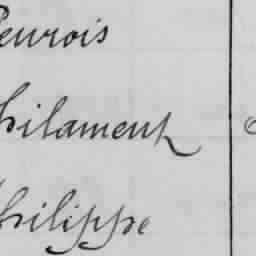 eurois
hilament
hilippe